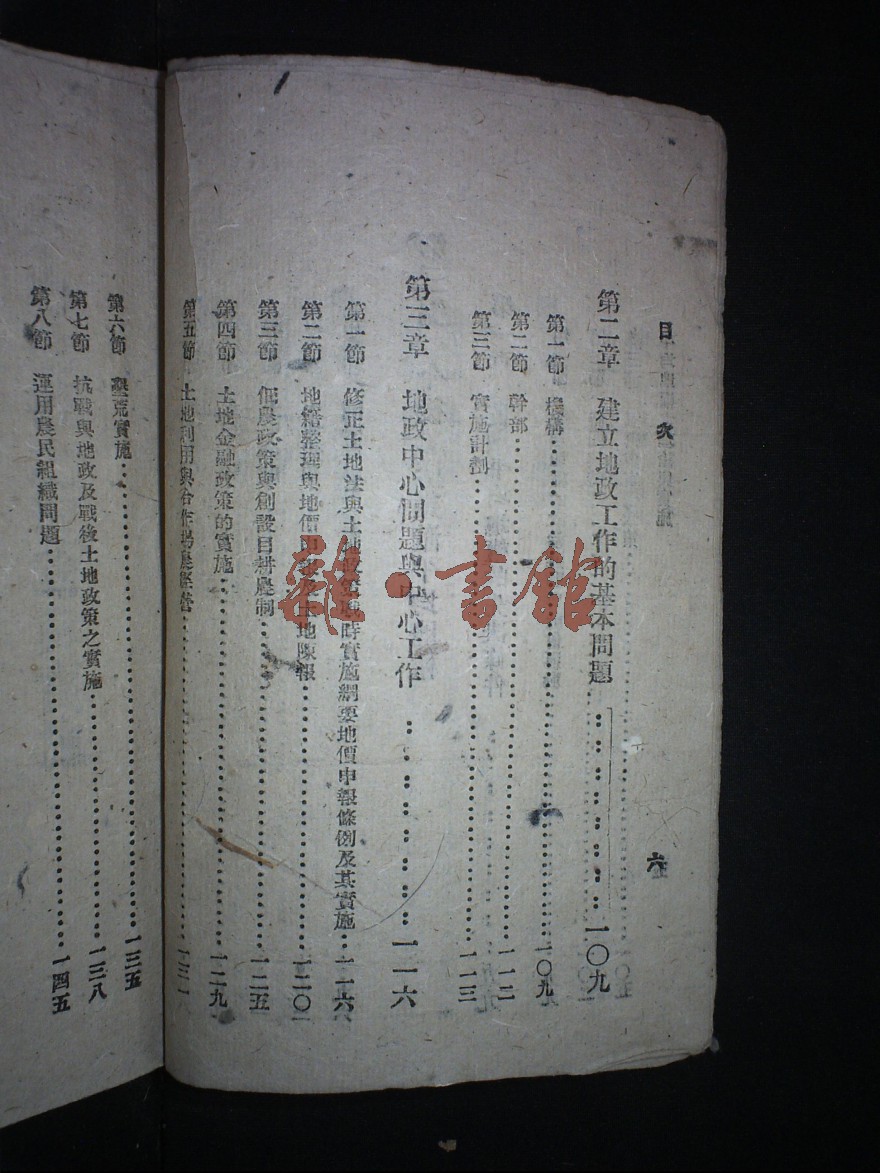 目 次
六
第二章 建立地政工作的基本問題……一〇九
第一節 機構……一〇九
第二節 幹部……一一二
第三節 實施計劃……一一三
第三章 地政中心問題與中心工作……一一六
第一節 修正土地法與土地政策戰時實施綱要地價申報條例及其實施……一一六
第二節 地籍整理與地價申報及土地陳報……一二〇
第三節 佃農政策與創設自耕農制……一二五
第四節 土地金融政策的實施……一二九
第五節 土地利用與合作場農經營……一三一
第六節 墾荒實施……一三五
第七節 抗戰與地政及戰後土地政策之實施……一三八
第八節 運用農民組織問題……一四五
雜·書館